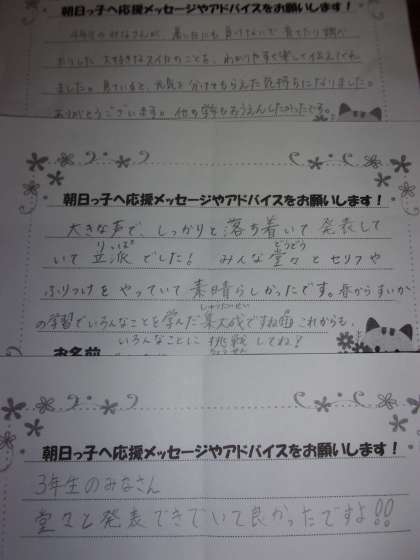 朝日っ子へ応援メッセージやアドバイスをお願いします！
4年生のみなさんが、暑い日にも負けないで育てたり調べ
たりした大好きなスイカのことを、わかりやすく楽しく伝えてくれ
ました。見ていると、元気を分けてもらえた気持ちになりました。
ありがとうございます。他の学年もおうえんしたかったです。
朝日っ子へ応援メッセージやアドバイスをお願いします！
大きな声で、しっかりと落ち着いて発表して
りっぱ どうどう
いて立派でした！ みんな堂々とセリフや
ふりつけをやっていて素晴らしかったです。春からすいか
しゅうたいせい
の学習でいろんなことを学んだ集大成ですね これからも、
いろんなことに挑戦してね！
お名前
朝日っ子へ応援メッセージやアドバイスをお願いします！
3年生のみなさん
堂々と発表できでいて良かったですよ!!